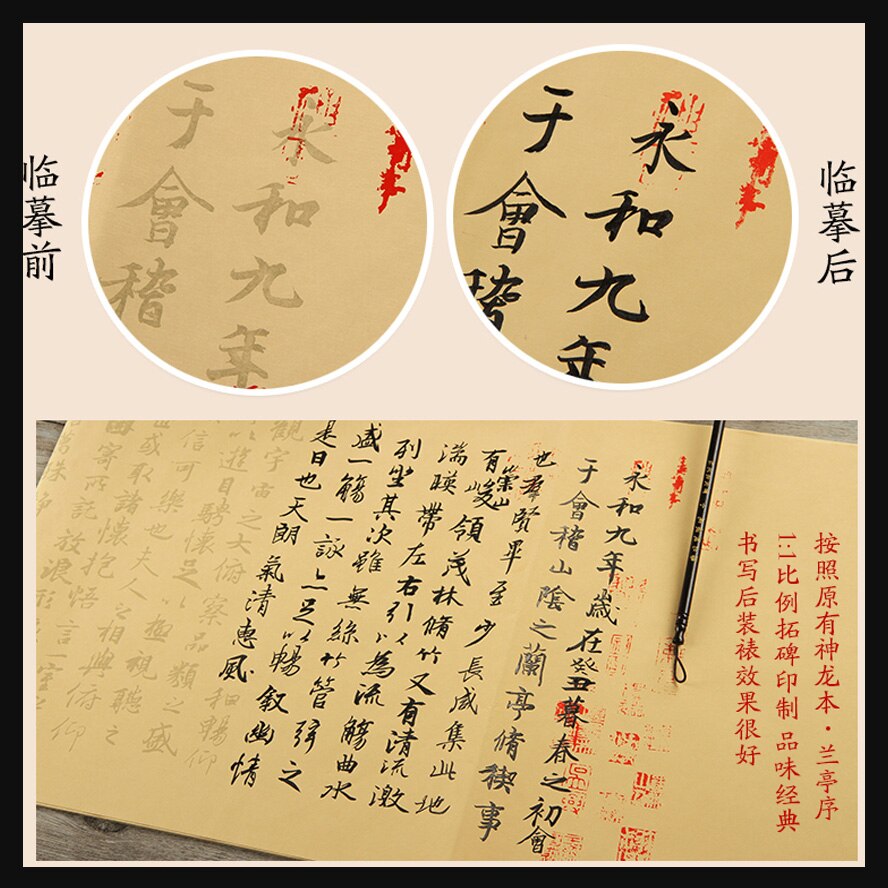 临摹前
永和九年
于會稽
临摹后
永和九年
于會稽
按照原有神龙本·兰亭序
1:1比例拓碑印制 品味经典
书写后装裱效果很好
永和九年歲在癸丑暮春之初會
于會稽山陰之蘭亭脩稧事
也羣賢畢至少長咸集此地
有崇山峻領茂林脩竹又有清流激
湍暎帶左右引以為流觴曲水
列坐其次雖無絲竹管弦之
盛一觴一詠亦足以暢叙幽情
是日也天朗氣清惠風和暢仰
觀宇宙之大俯察品類之盛
以遊目騁懷足以極視聽之
信可樂也夫人之相與俯仰
或取諸懷抱悟言一室之
寄所託放浪形